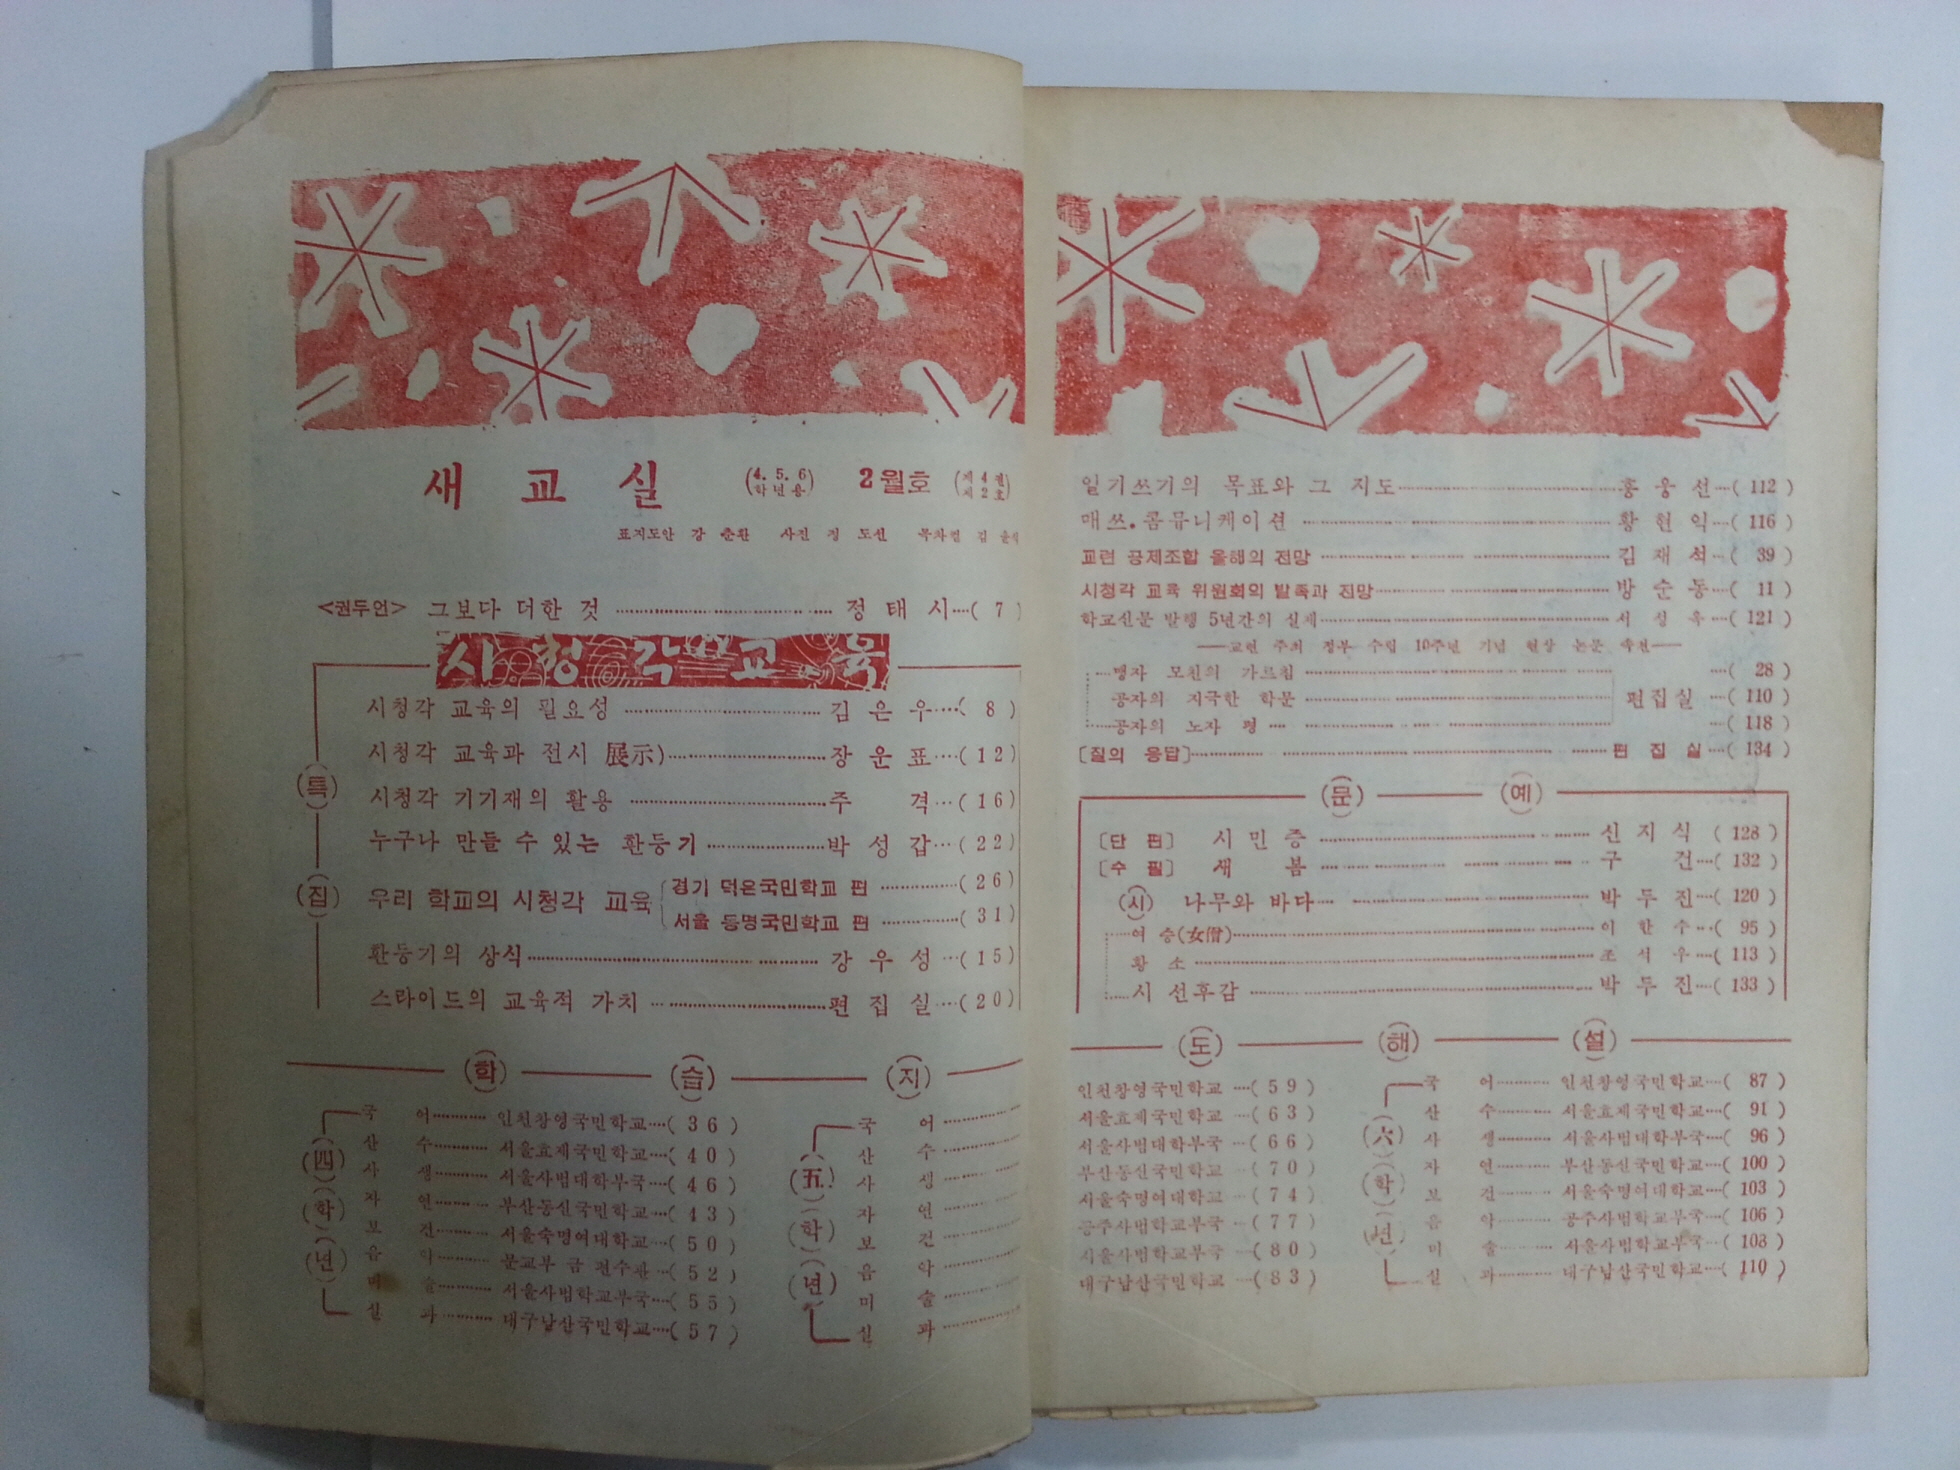 새 교 실 (4. 5. 6 학년용) 2월호 (제4권 제2호)
표지도안 강 춘환 사진 정 도선 목차컽 김
<권두언> 그보다 더한 것 정 태 시 ( 7 )
사 청 각 교 육
특 집
시청각 교육의 필요성 김 은 우 ( 8 )
시청각 교육과 전시 展示) 장 운 표 (12)
시청각 기기재의 활용 주 격 (16)
누구나 만들 수 있는 환등기 박 성 갑 (22)
우리 학교의 시청각 교육
경기 덕은국민학교 편 (26)
서울 동명국민학교 편 (31)
환등기의 상식 강 우 성 (15)
스라이드의 교육적 가치 편 집 실 (20)
일기쓰기의 목표와 그 지도 홍 웅 선 ( 112 )
매쓰.콤뮤니케이션 황 현 익 ( 116 )
교련 공제조합 올해의 전망 김 재 석 ( 39 )
시청각 교육 위원회의 발족과 전망 방 순 동 ( 11 )
학교신문 발행 5년간의 실제 서 성 옥 ( 121 )
교련 주최 정부 수립 10주년 기념 현상 논문 속편
맹자 모친의 가르침 ( 28 )
공자의 지극한 학문 편집실 ( 110 )
공자의 노자 평 ( 118 )
[질의 응답] 편 집 실 ( 134 )
(문) (예)
[단 편] 시 민 증 신 지 식 ( 128 )
[수 필] 새 봄 구 건 ( 132 )
(시) 나무와 바다 박 두 진 ( 120 )
여 승(女僧) 이 한 수 ( 95 )
황 소 조 석 우 ( 113 )
시 선후감 박 두 진 ( 133 )
(학) (습) (지) (도) (해) (설)
(四) (학) (년)
국 어 인천창영국민학교 (36)
산 수 서울효제국민학교 (40)
사 생 서울사범대학부국 (46)
자 연 부산동신국민학교 (43)
보 건 서울숙명여대학교 (50)
음 악 문교부 금 편수관 (52)
미 술 서울사범학교부국 (55)
실 과 대구남산국민학교 (57)
(五) (학) (년)
국 어 인천창영국민학교 (59)
산 수 서울효제국민학교 (63)
사 생 서울사범대학부국 (66)
자 연 부산동신국민학교 (70)
보 건 서울숙명여대학교 (74)
음 악 공주사범학교부국 (77)
미 술 서울사범학교부국 (80)
실 과 대구남산국민학교 (83)
(六) (학) (년)
국 어 인천창영국민학교 ( 87 )
산 수 서울효제국민학교 ( 91 )
사 생 서울사범대학부국 ( 96 )
자 연 부산동신국민학교 ( 100 )
보 건 서울숙명여대학교 ( 103 )
음 악 공주사범학교부국 ( 106 )
미 술 서울사범학교부국 ( 108 )
실 과 대구남산국민학교 ( 110 )